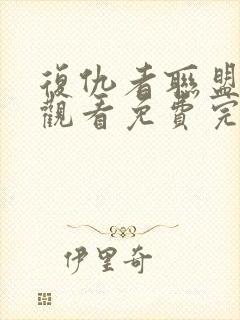 復仇者聯盟
觀看免費完
伊里奇